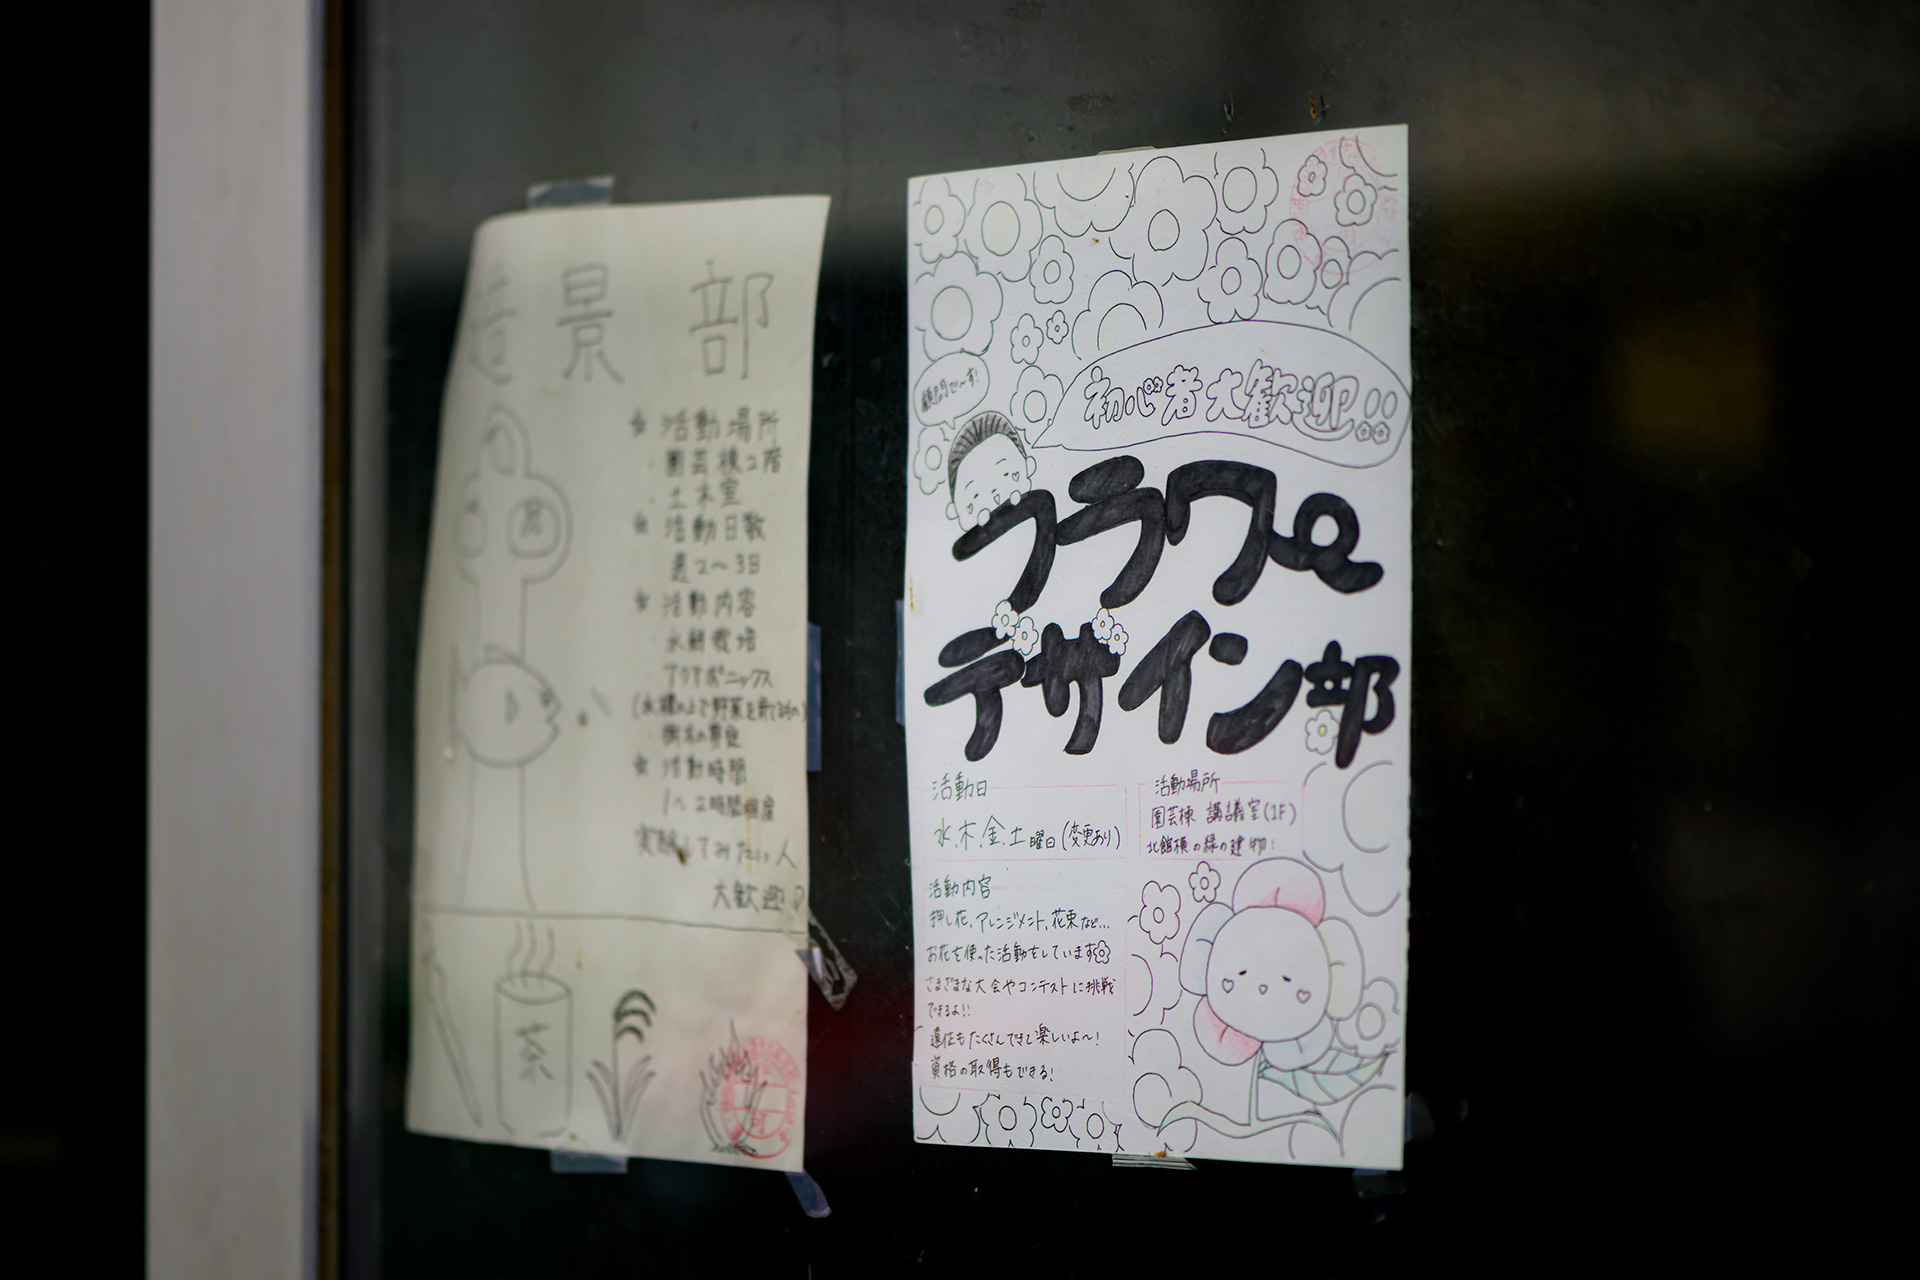 造景部
★活動場所
・園芸棟2階
・土木室
★活動日数
週2〜3日
★活動内容
・水耕栽培
・アクアポニックス
(水槽の上で野菜を育てるもの)
・樹木の剪定
★活動時間
1〜2時間程度
実験してみたい人
大歓迎
茶
顧問で〜す!
初心者大歓迎!!
フラワー
デザイン部
活動日
水、木、金、土曜日(変更あり)
活動場所
園芸棟 講議室(1F)
北館横の緑の建物!
活動内容
押し花、アレンジメント、花束など...
お花を使った活動をしています
さまざまな大会やコンテストに挑戦
できるよ!!
遠征もたくさんできて楽しいよ〜!
資格の取得もできる!